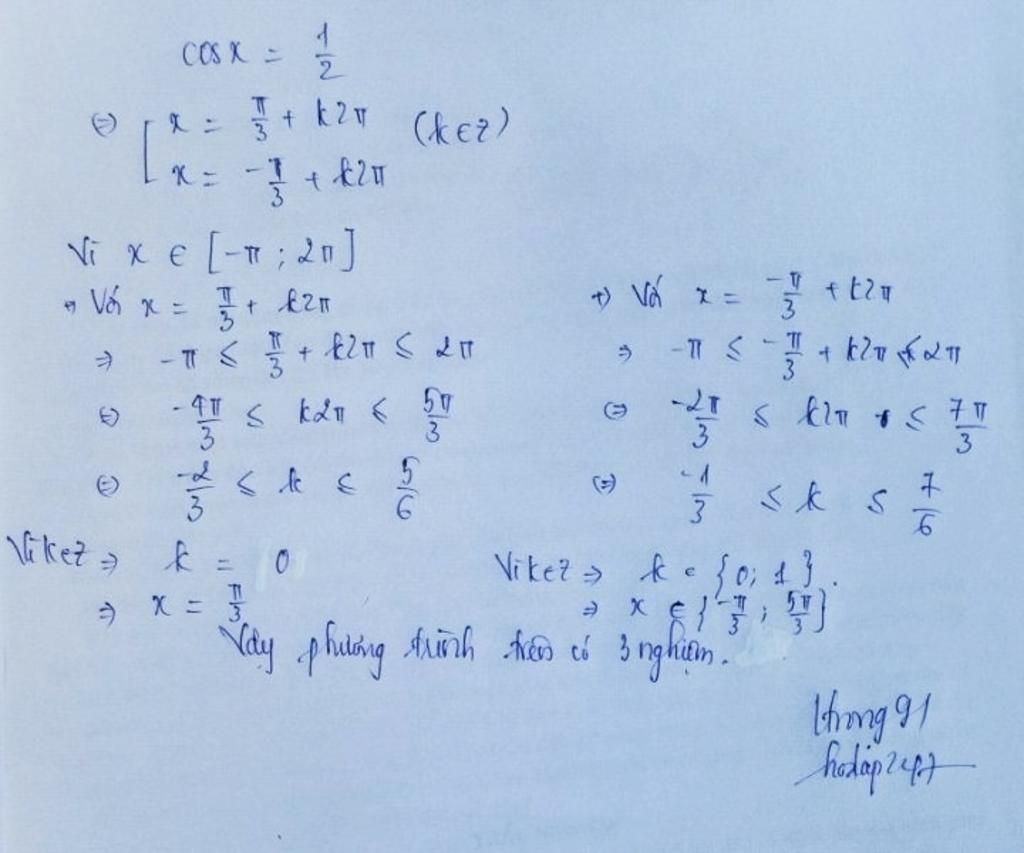 cosx = 1/2
⇔ [ x = π/3 + k2π (k∈Z)
x = -π/3 + k2π
Vì x ∈ [-π ; 2π]
+) Với x = π/3 + k2π
⇒ -π ≤ π/3 + k2π ≤ 2π
⇔ -4π/3 ≤ k2π ≤ 5π/3
⇔ -2/3 ≤ k ≤ 5/6
Vì k∈Z ⇒ k = 0
⇒ x = π/3
+) Với x = -π/3 + k2π
⇒ -π ≤ -π/3 + k2π ≤ 2π
⇔ -2π/3 ≤ k2π ≤ 7π/3
⇔ -1/3 ≤ k ≤ 7/6
Vì k∈Z ⇒ k ∈ {0; 1}.
⇒ x ∈ {-π/3 ; 5π/3}
Vậy phương trình trên có 3 nghiệm.
hoidap247